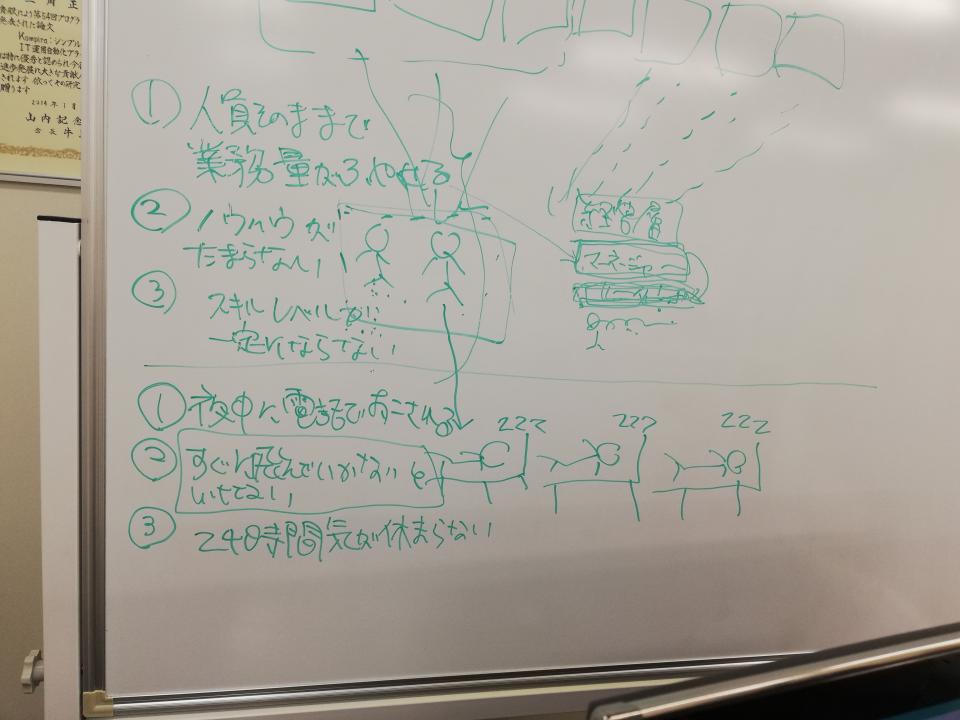 貢献により第54回プログラ
発表された論文
Kompira:シンプル
IT運用自動化プラ
は特に優秀と認められ今後
進歩発展に大きな貢献
されます 依ってその研究
贈ります
2014年1月
山内記念
会長 牛
① 人員そのままで
業務量がふやせる
② ノウハウが
たまらない
③ スキルレベルが
一定にならない
経営層
マネージャー
① 夜中に電話でおこされる
② すぐに
③ 24時間気が休まらない
zzz
zzz
zzz